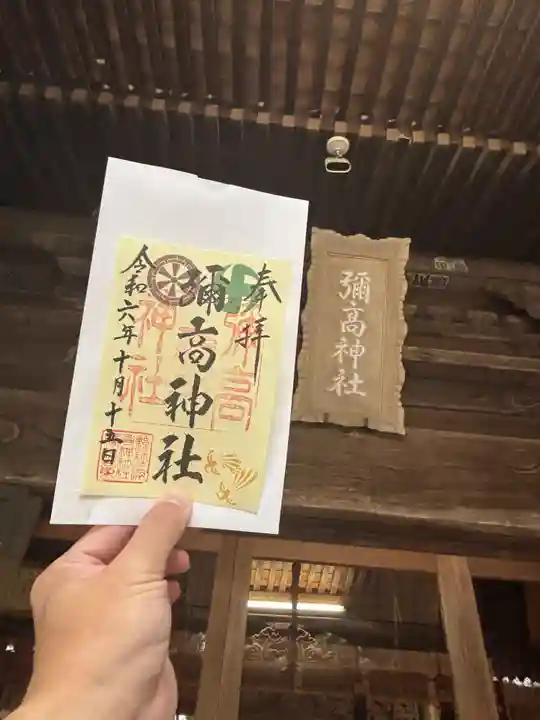 奉拝
彌高神社
彌高神社
令和六年十月十五日
彌高神社